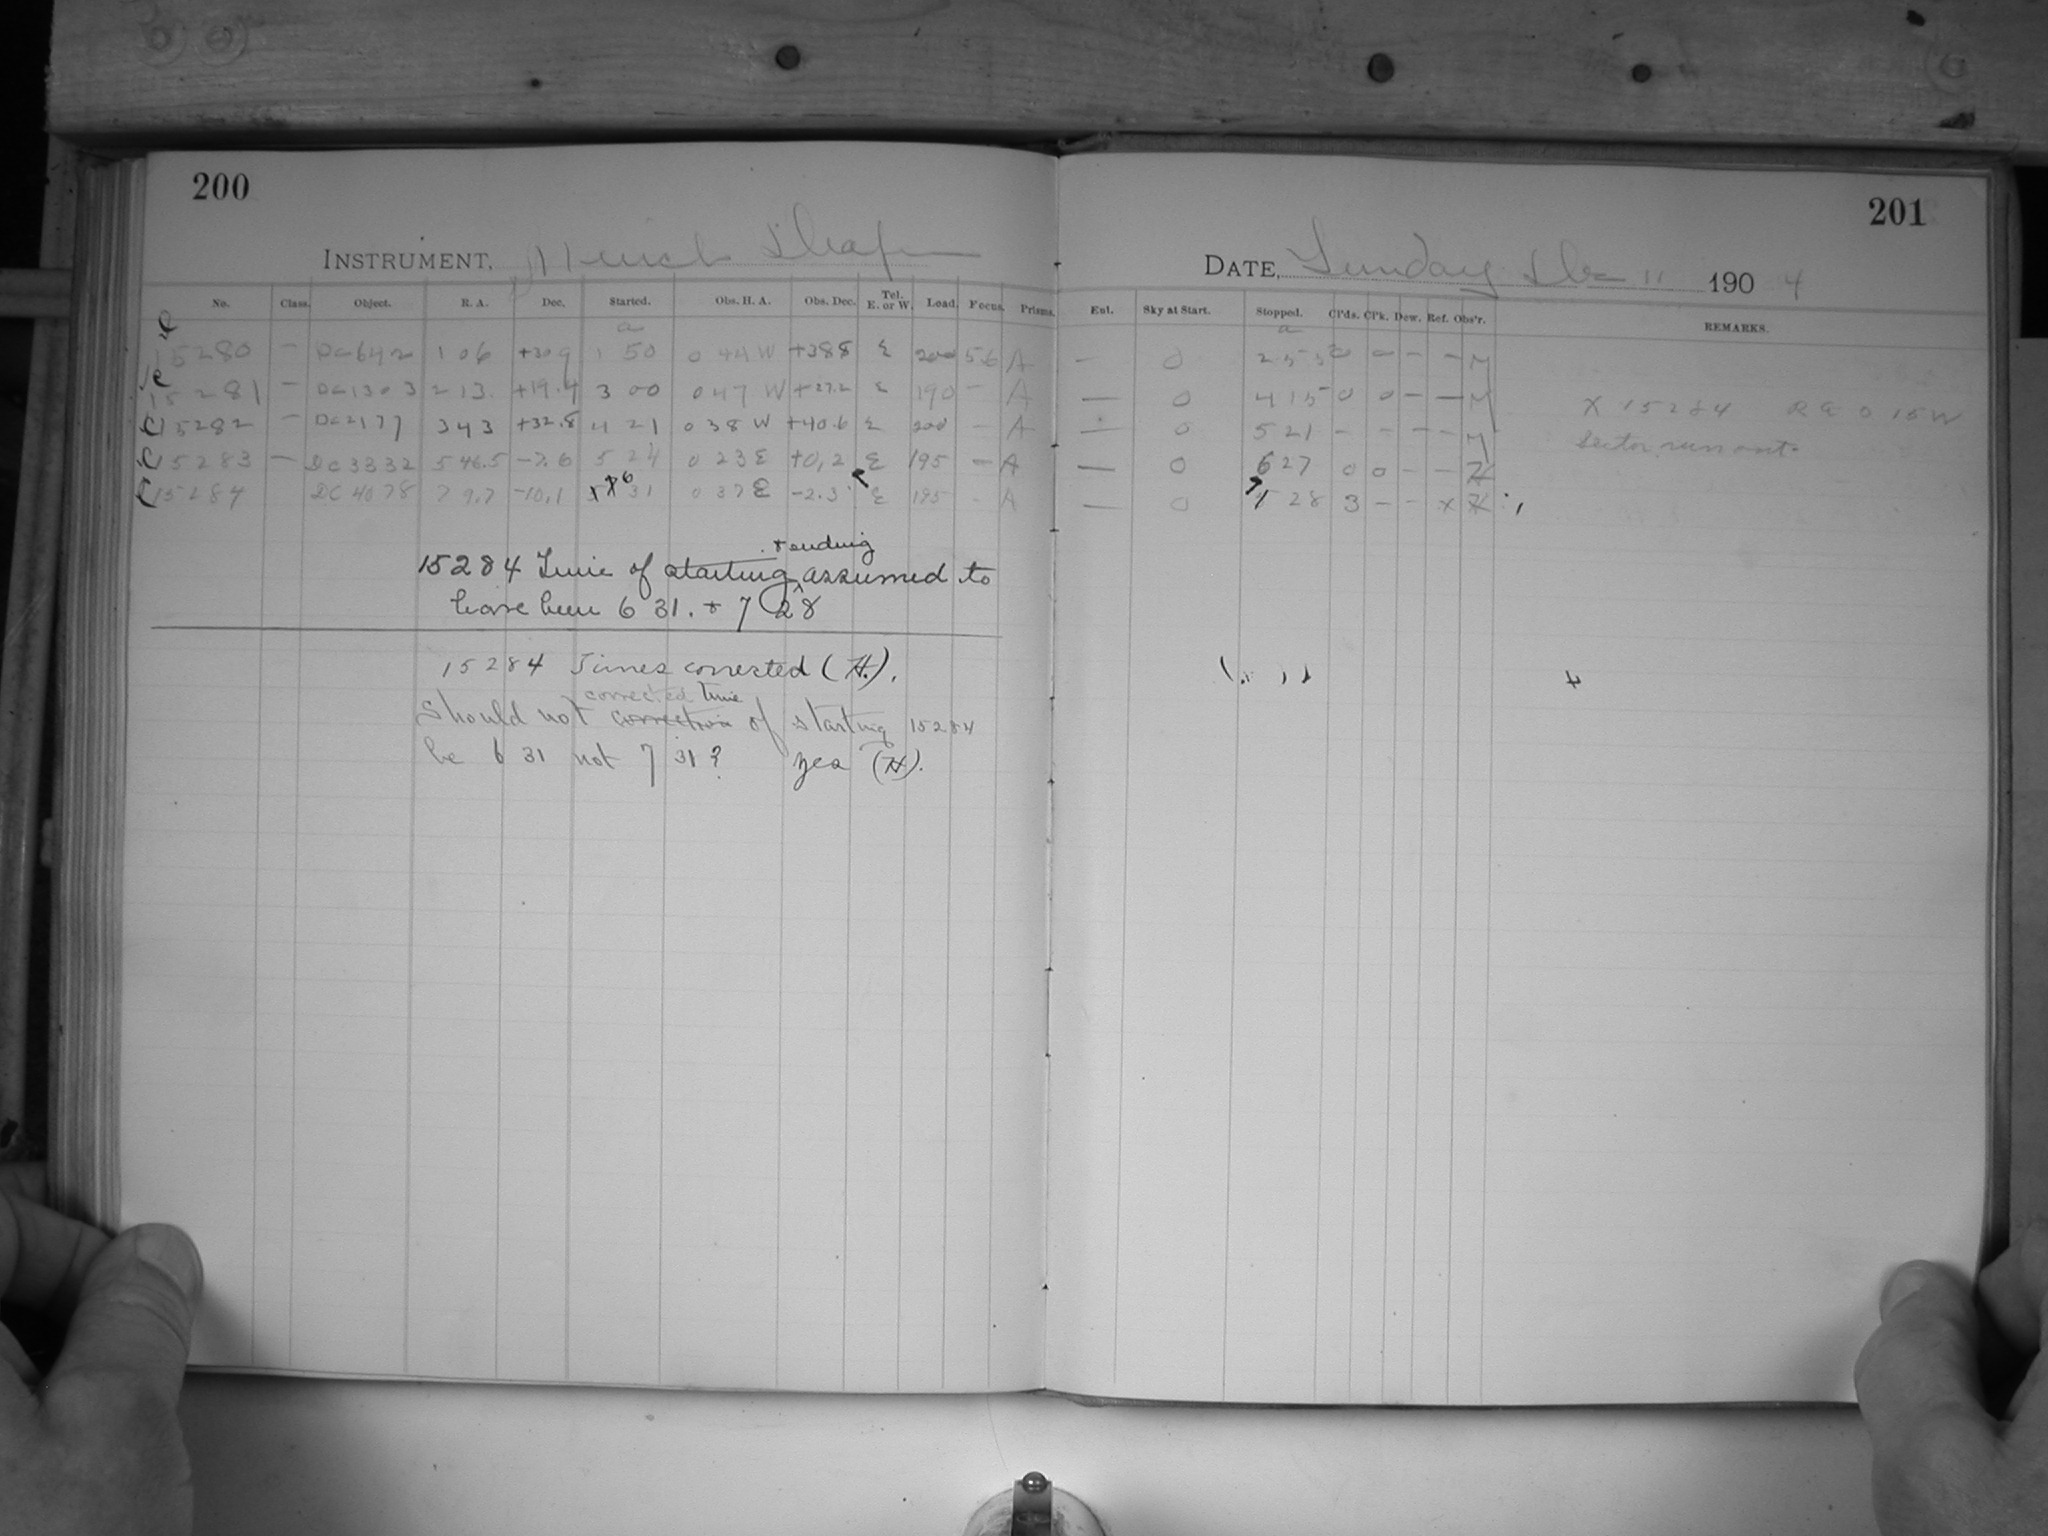 200
INSTRUMENT, 11 inch Draper
No. Class. Object. R. A. Dec. Started. Obs. H. A. Obs. Dec. Tel. E. or W. Load. Focus. Prisms.
a
15280 – DC 642 1 06 +30.9 1 50 0 44 W +38.8 E 200 5.6 A
15281 – DC 1303 2 13. +19.4 3 00 0 47 W +27.2 E 190 – A
C 15282 – DC 2177 3 43 +32.8 4 21 0 38 W +40.6 E 200 – A
C 15283 – DC 3332 5 46.5 –7.6 5 24 0 23 E +0.2 E 195 – A
C 15284 DC 4078 7 9.7 –10.1 x 6 31 0 37 E –2.3 E 195 – A
+ ending
15284 Time of starting assumed to
have been 6 31. + 7 28
15284 Times corrected (H.).
corrected time
Should not correction of starting 15284
be 6 31 not 7 31? yes (H).
201
DATE, Sunday Dec 11 1904
Ent. Sky at Start. Stopped. Cl'ds. Cl'k. Dew. Ref. Obs'r. REMARKS.
a
— 0 2 55 0 0 – – M
— 0 4 15 0 0 – – M
— 0 5 21 – – – – M
— 0 6 27 0 0 – – H
— 0 7 28 3 – – x H
X 15284 R E 0 15 W
Sector run out.